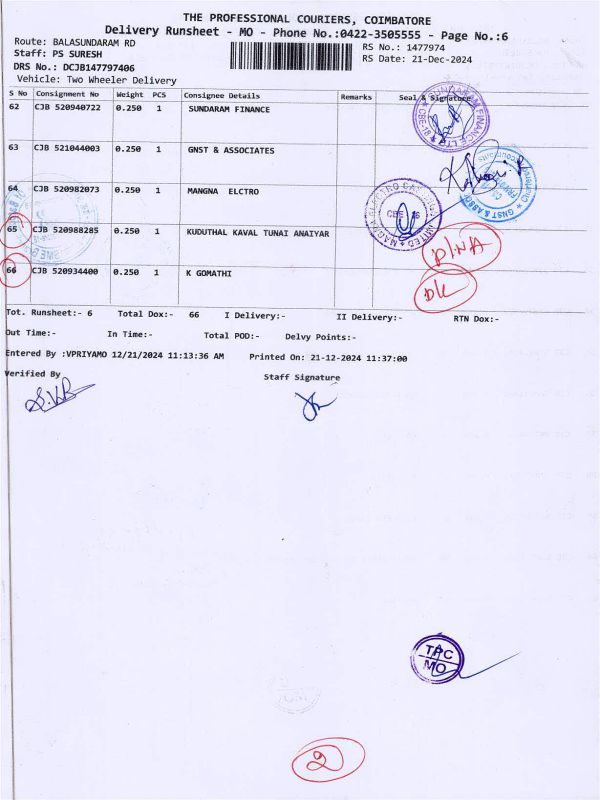 THE PROFESSIONAL COURIERS, COIMBATORE
Delivery Runsheet - MO - Phone No.:0422-3505555 - Page No.:6
Route: BALASUNDARAM RD
RS No.: 1477974
Staff: PS SURESH
RS Date: 21-Dec-2024
DRS No.: DCJB147797406
Vehicle: Two Wheeler Delivery
S No Consignment No Weight PCS Consignee Details Remarks Seal & Signature
62 CJB 520940722 0.250 1 SUNDARAM FINANCE
63 CJB 521044003 0.250 1 GNST & ASSOCIATES
64 CJB 520982073 0.250 1 MANGNA ELCTRO
65 CJB 520988285 0.250 1 KUDUTHAL KAVAL TUNAI ANAIYAR
D/NA
66 CJB 520934400 0.250 1 K GOMATHI
DL
Tot. Runsheet:- 6 Total Dox:- 66 I Delivery:- II Delivery:- RTN Dox:-
Out Time:- In Time:- Total POD:- Delvy Points:-
Entered By :VPRIYAMO 12/21/2024 11:13:36 AM Printed On: 21-12-2024 11:37:00
Verified By Staff Signature
TPC
MO
2